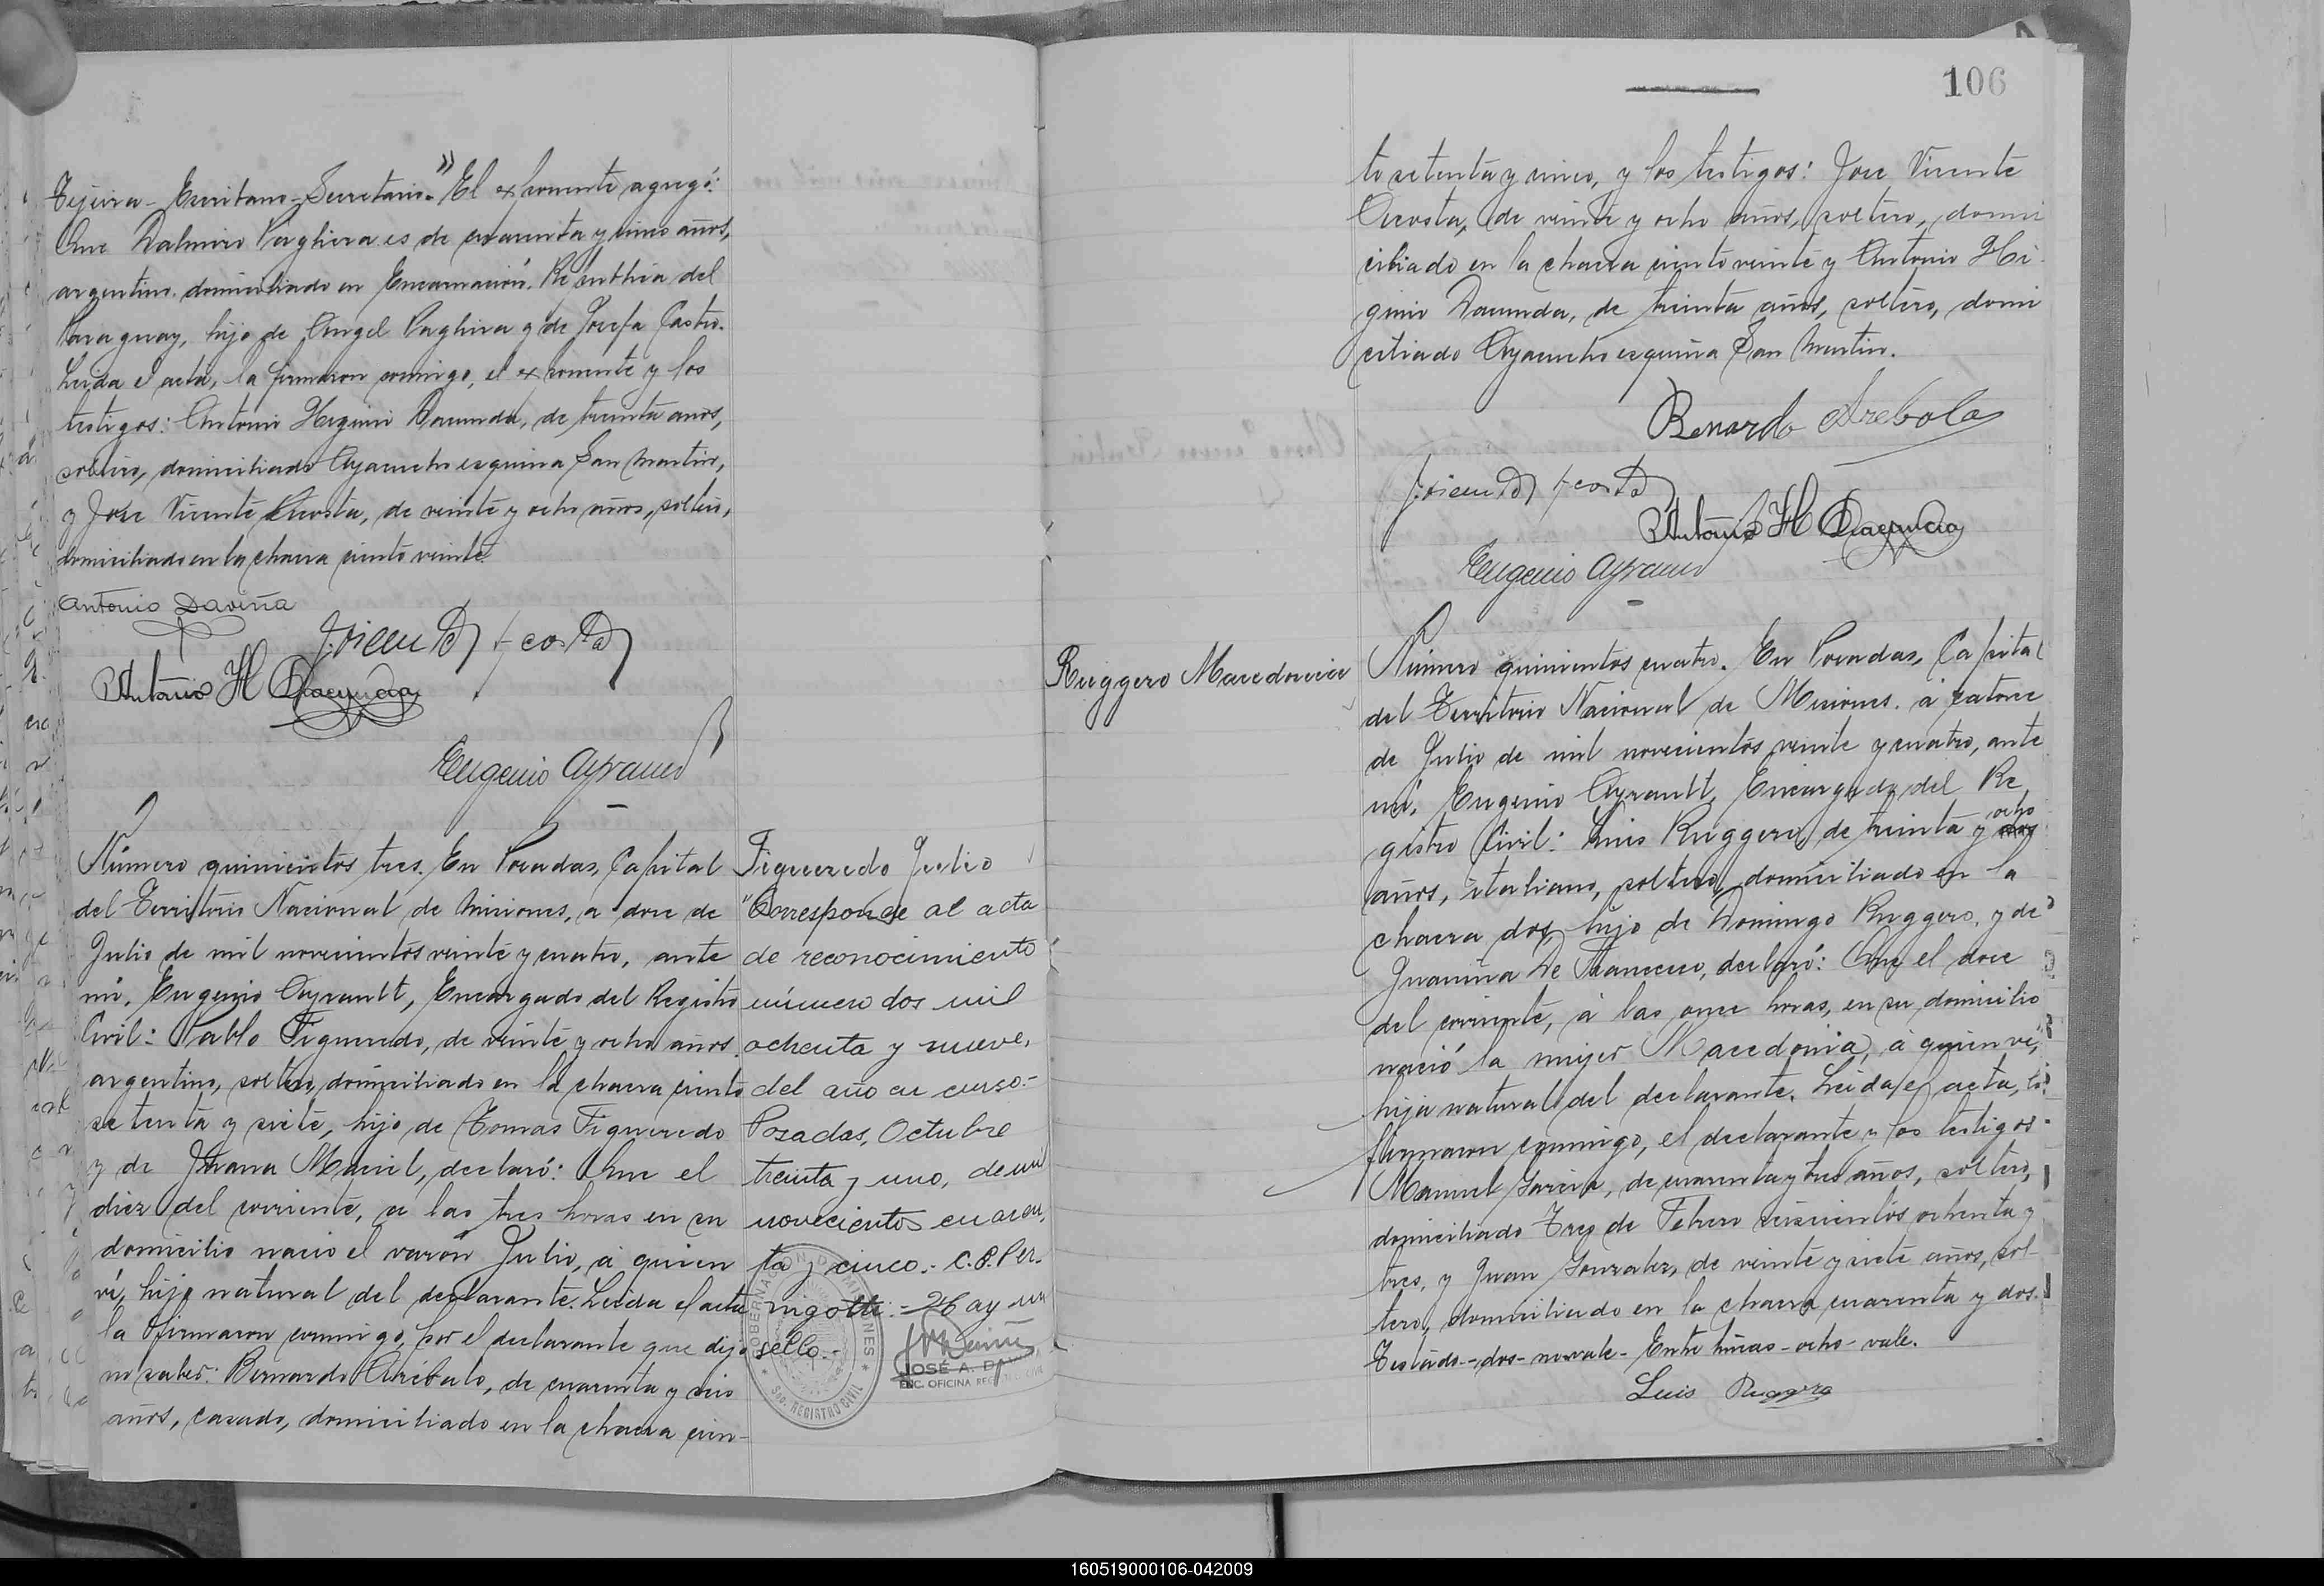 Tejeira - Escribano - Secretario." El exponente agregó:
Que Dalmiro Varghira es de cuarenta y cinco años,
argentino, domiciliado en Encarnación, República del
Paraguay, hijo de Angel Varghira y de Josefa Castro.
Leida el acta, la firmaron conmigo, el exponente y los
testigos: Antonio Higinio Dacunda, de treinta años,
soltero, domiciliado Ayacucho esquina San Martin,
y Jose Vicente Acosta, de veinte y ocho años, soltero,
domiciliado en la chacra ciento veinte.
Antonio Daviña
J. Vicente Acosta
Antonio H Dacunda
Eugenio Ayrault
Número quinientos tres. En Posadas, Capital
del Territorio Nacional de Misiones, a doce de
Julio de mil novecientos veinte y cuatro, ante
mí, Eugenio Ayrault, Encargado del Registro
Civil: Pablo Figueredo, de veinte y ocho años,
argentino, soltero, domiciliado en la chacra ciento
setenta y siete, hijo de Tomas Figueredo
y de Juana Maciel, declaró: Que el
diez del corriente, a las tres horas en su
domicilio nació el varón Julio, á quien
ví, hijo natural del declarante. Leida el acta
la firmaron conmigo, por el declarante que dijo
no saber: Bernardo Arébalo, de cuarenta y seis
años, casado, domiciliado en la chacra cien-
Figueredo Julio
"Corresponde al acta
de reconocimiento
número dos mil
ochenta y nueve,
del año en curso.-
Posadas, Octubre
treinta y uno, de mil
novecientos cuaren,
ta y cinco.- C. P. Per.
nigotti.- Hay un
sello.-
GOBERNACION DE MISIONES
SEC. REGISTRO CIVIL
JOSÉ A. D
ENC. OFICINA REG. CIVIL
106
to setenta y cinco, y los testigos: Jose Vicente
Acosta, de veinte y ocho años, soltero, domi
ciliado en la chacra ciento veinte y Antonio Hi
ginio Dacunda, de treinta años, soltero, domi
ciliado Ayacucho esquina San Martin.
Bernardo Arebolo
J. Vicente Acosta
Antonio H Dacunda
Eugenio Ayrault
Ruggero Macedonia
Número quinientos cuatro. En Posadas, Capital
del Territorio Nacional de Misiones, á catorce
de Julio de mil novecientos veinte y cuatro, ante
mí, Eugenio Ayrault, Encargado del Re
gistro Civil: Luis Ruggero, de treinta y dos ocho
años, italiano, soltero, domiciliado en la
chacra dos, hijo de Domingo Ruggero, y de
Juanina De Francesco, declaró: Que el doce
del corriente, á las once horas, en su domicilio
nació la mujer Macedonia, á quien ví,
hija natural del declarante. Leida el acta, la
firmaron conmigo, el declarante y los testigos
Manuel Garcia, de cuarenta y tres años, soltero,
domiciliado Tres de Febrero seiscientos ochenta y
tres, y Juan Gonzalez, de veinte y siete años, sol-
tero, domiciliado en la chacra cuarenta y dos.
Testado - dos - no vale - Entre líneas - ocho - vale.
Luis Ruggero
160519000106-042009